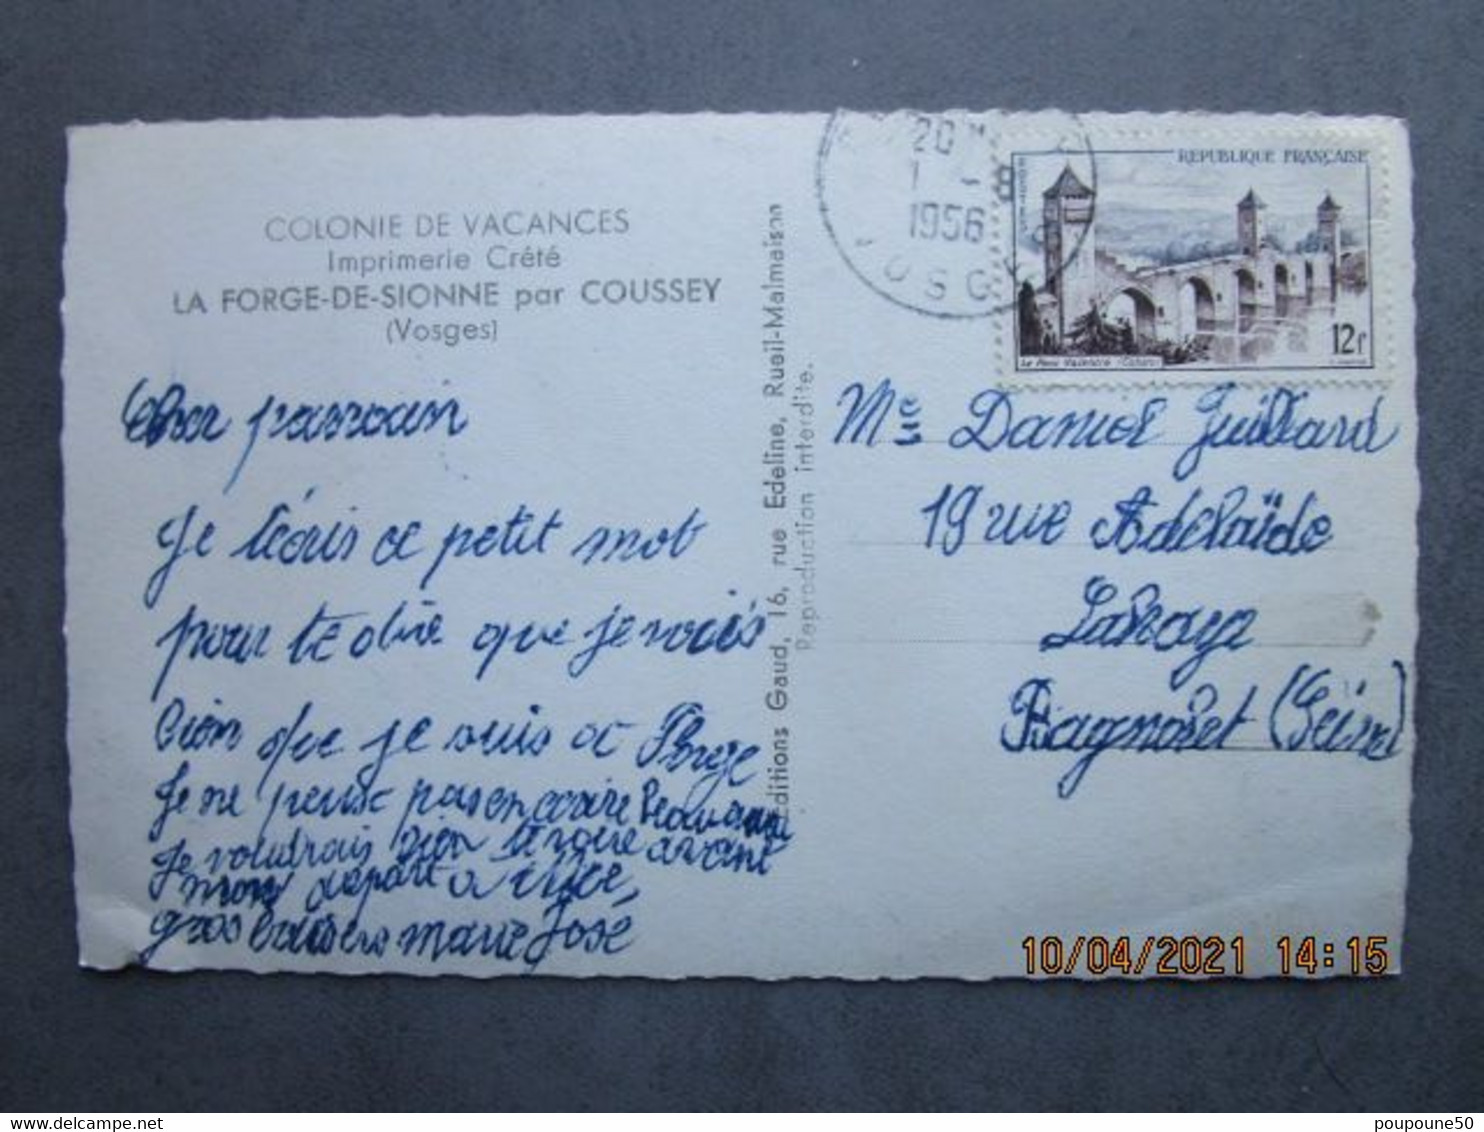 COLONIE DE VACANCES
Imprimerie Crété
LA FORGE-DE-SIONNE par COUSSEY
(Vosges)
Cher parrain
Je t'écris ce petit mot
pour te dire que je vais
bien que je suis a Forge
Je ne peux pas encore
Je voudrais bien avant
mon départ a
gros baisers marie José
Editions Gaud, 16, rue Edeline, Rueil-Malmaison
Reproduction interdite.
20
1 - 8
1956
VOSGES
REPUBLIQUE FRANÇAISE
Le Pont Valentré (Cahors)
12f
Mr Daniel Guillard
19 rue Adelaïde
Lahaye
Bagnolet (Seine)
10/04/2021 14:15
poupoune50